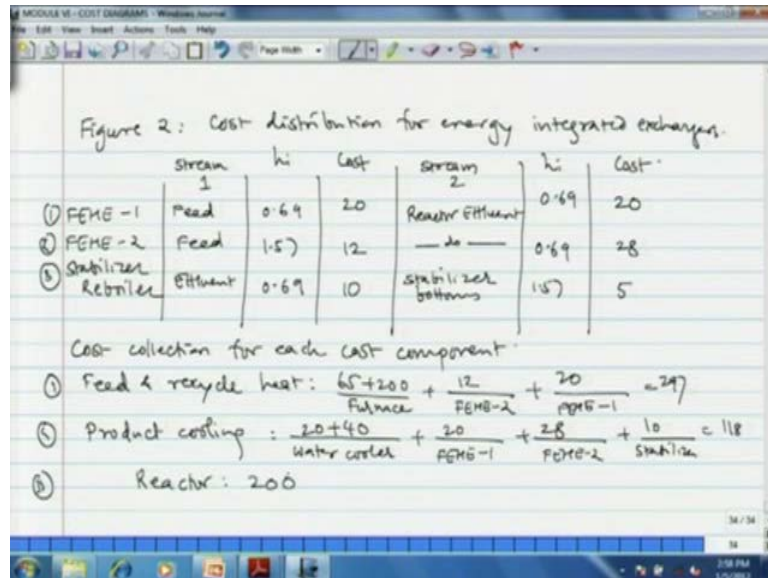 MODULE VI - COST DIAGRAMS - Windows Journal
File Edit View Insert Actions Tools Help
Page Width
Figure 2: Cost distribution for energy integrated exchangers.
Stream 1 hi Cost Stream 2 hi Cost
① FEHE-1 Feed 0.69 20 Reactor Effluent 0.69 20
② FEHE-2 Feed 1.57 12 — do — 0.69 28
③ Stabilizer Reboiler Effluent 0.69 10 stabilizer bottoms 1.57 5
Cost collection for each cost component.
① Feed & recycle heat: 65+200 + 12 + 20 = 297
Furnace FEHE-2 FEHE-1
Product cooling: 20+40 + 20 + 28 + 10 = 118
Water cooler FEHE-1 FEHE-2
③ Reactor: 200
34 / 34
34
2:58 PM
1/5/2012